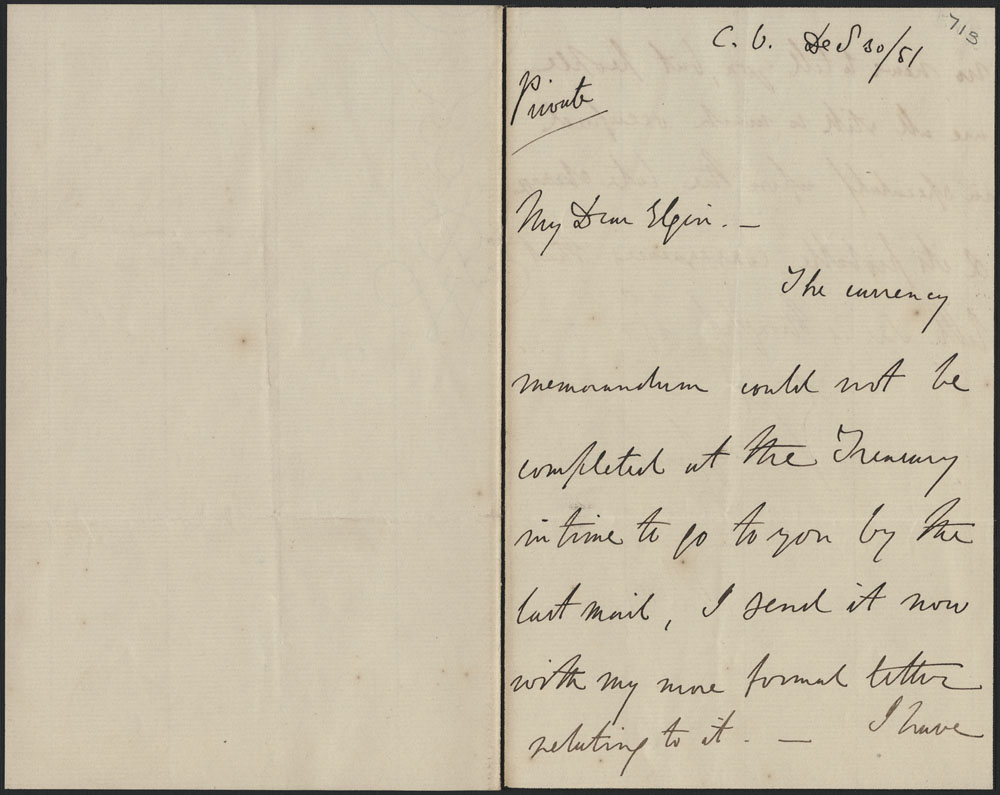 713
C. O. Dec 30/51
Private
My Dear Elgin. —
The currency
memorandum could not be
completed at the Treasury
in time to go to you by the
last mail, I send it now
with my more formal letter
relating to it. — I have